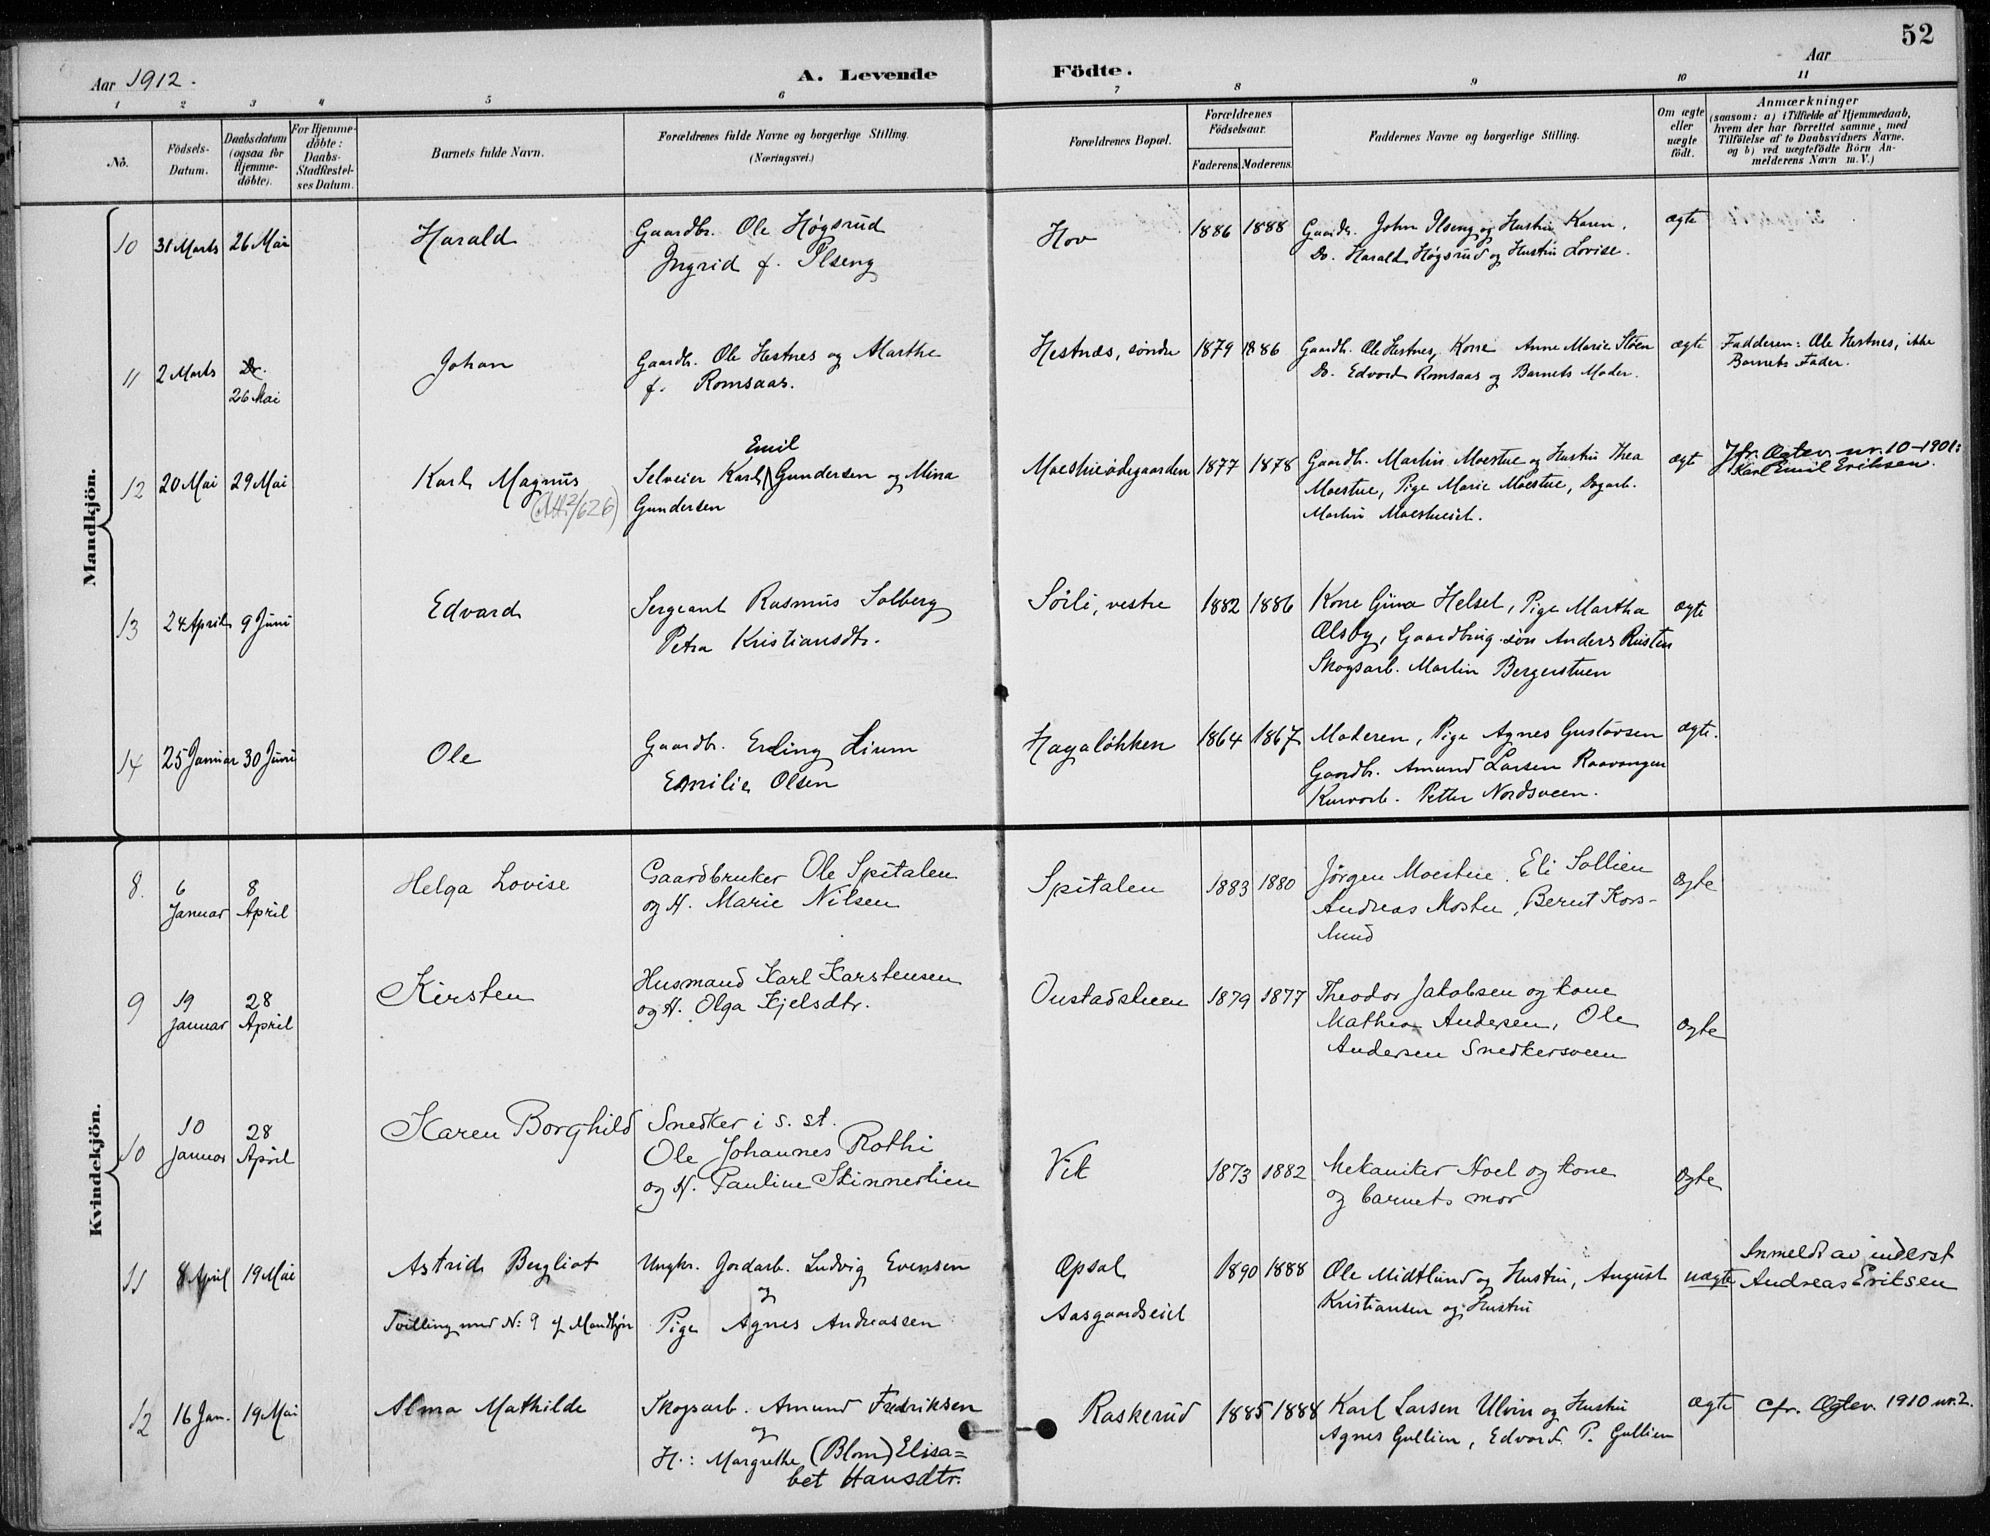 52
Aar 1912.
A. Levende Födte.
Aar
1 2 3 4 5 6 7 8 9 10 11
No.
Födsels-
Datum.
Daabsdatum
(ogsaa for
Hjemme-
döbte).
For Hjemme-
döbte:
Daabs-
Stadfæstel-
ses Datum.
Barnets fulde Navn.
Forældrenes fulde Navne og borgerlige Stilling.
(Næringsvei.)
Forældrenes Bopæl.
Forældrenes
Födselsaar.
Faderens. Moderens.
Faddernes Navne og borgerlige Stilling.
Om ægte
eller
uægte
födt.
Anmærkninger
(saasom: a) i Tilfælde af Hjemmedaab,
hvem der har forrettet samme, med
Tilföielse af to Daabsvidners Navne.
og b) ved uægtefödte Börn An-
melderens Navn m. V.)
Mandkjön.
10 31 Marts 26 Mai
Harald
Gaardbr. Ole Høgsrud
Ingrid f. Ilseng
Hov
1886 1888
Gaardbr. John Ilseng og Hustru Karen.
Do. Harald Høgsrud og Hustru Lovise.
ægte
11 2 Marts Do.
26 Mai
Johan
Gaardb. Ole Hestnes og Marthe
f. Romsaas.
Hestnæs, søndre
1879 1886
Gaardb. Ole Hestnes, Kone Anne Marie Støen
Do. Edvard Romsaas og Barnets Moder.
ægte
Fadderen: Ole Hestnes, ikke
Barnets Fader.
12 20 Mai 29 Mai
Karl Magnus
Emil
Selveier Karl Gundersen og Mina
Gundersen
Moestueødegaarden
1877 1878
Gaardb. Martin Moestue og Hustru Thea
Moestue, Pige Marie Moestue, Dagarb.
Martin Moestueeiet.
ægte
Jfr. Ægtev. nr. 10-1901:
Karl Emil Eriksen.
13 24 April 9 Juni
Edvard
Sergeant Rasmus Solberg
Petra Kristiansdtr.
Sørli, vestre
1882 1886
Kone Gina Helset, Pige Martha
Ælsby, Gaardbrug. søn Anders Rusten
Skogsarb. Martin Bergerstuen
ægte
14 25 Januar 30 Juni
Ole
Gaardbr. Erling Lium
Emilie Olsen
Hagaløkken
1864 1867
Moderen, Pige Agnes Gustavsen
Gaardb. Amund Larsen Raavangen
Petter Nordsveen.
ægte.
Kvindekjön.
8. 6
Januar
8
April
Helga Lovise
Gaardbruker Ole Spitalen
og H. Marie Nilsen
Spitalen
1883 1880
Jørgen Moestue. Eli Sollien
Andreas Mostue, Bernt Kors-
lund
ægte
9 19
januar
28
April
Kirsten
Husmand Karl Karstensen
og H. Olga Kjelsdtr.
Onstadstuen
1879 1877
Theodor Jakobsen og kone
Mathea Andersen, Ole
Andersen Snedkersveen
ægte
10 10
Januar
28
April
Karen Borghild
Snedker i s. st.
Ole Johannes Rothi
og H. Pauline Skinnerlien
Vik
1873 1882
Mekaniker Hoel og kone
og barnets mor
ægte
11 8 April 19 Mai
Astrid Bergliot
Tvilling med No: 9 af Mandkjøn
Ungkr. Jordarb. Ludvig Evensen
og
Pige Agnes Andreassen
Opsal
Aasgaardseiet
1890 1888
Ole Midtlund og Hustru, August
Kristiansen og Hustru
uægte
Inmeldt av inderst
Andreas Eriksen
12 16 Jan. 19 Mai
Alma Mathilde
Skogsarb. Amund Fredriksen
og
H.: Margrethe (Blom) Elisa=
bet Hansdtr.
Raskerud
1885 1888
Karl Larsen Ulvin og Hustru
Agnes Gullien, Edvard P. Gullien
ægte
cfr. Ægtev. 1910 nr. 2.